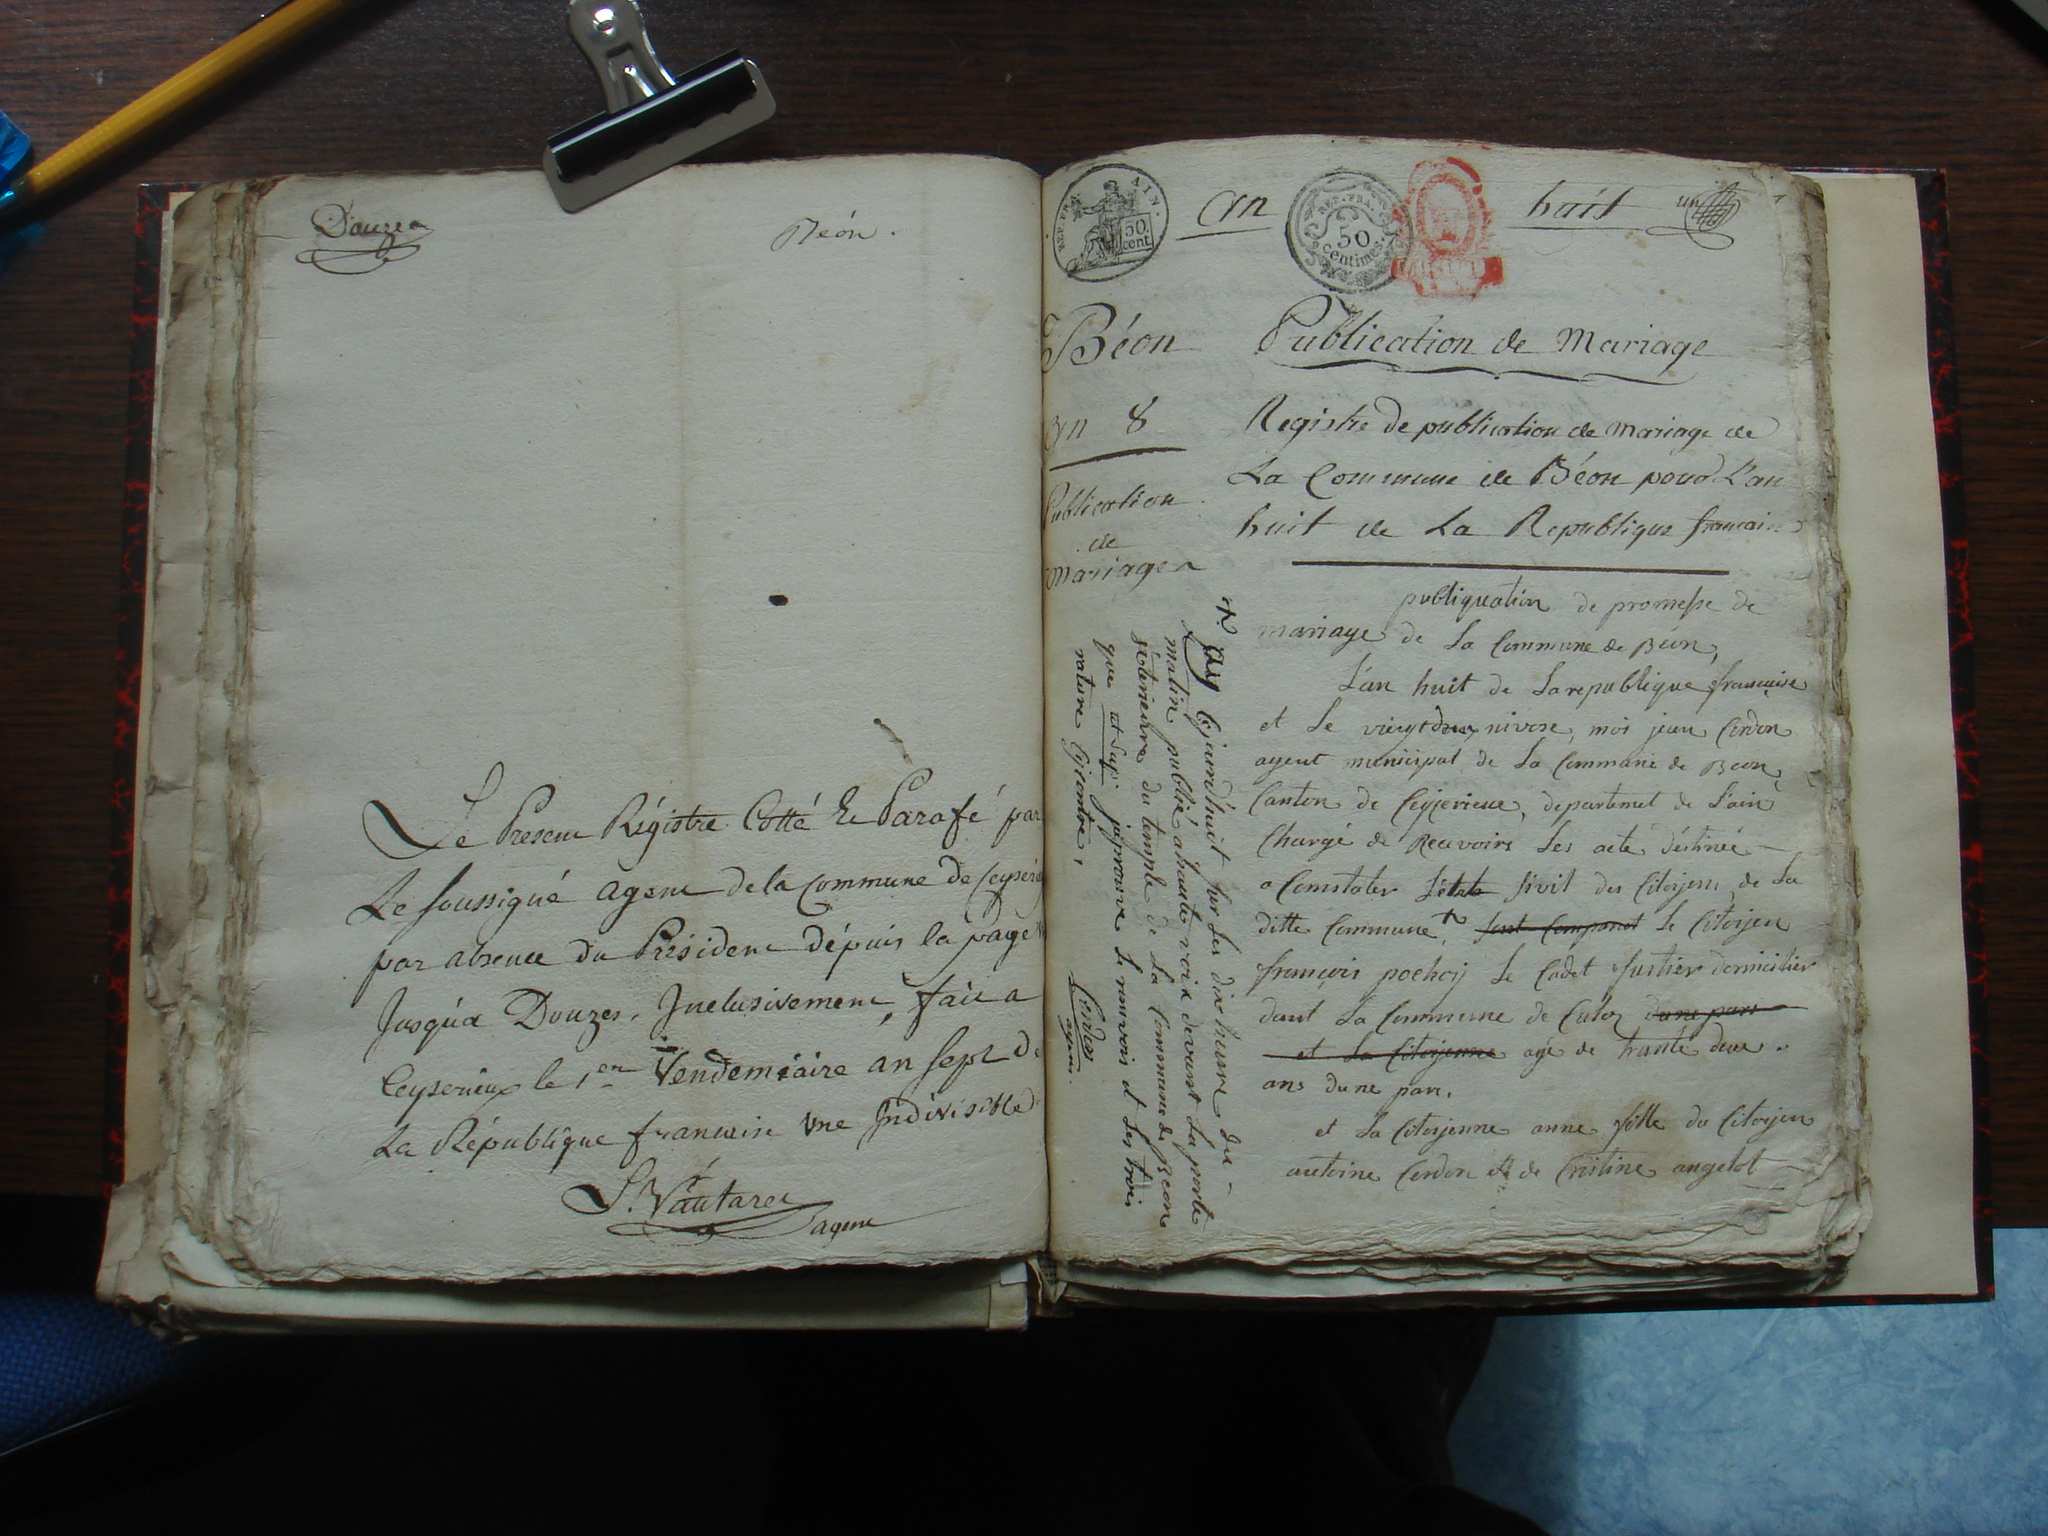 Douze
Béon.
Le Present Régistre Cotté et Parafé par
Le soussigné agent de la Commune de Ceyserie
par absence du Président dépuis la page
Jusqu'a Douzes, Inclusivement, fait a
Ceyserieux le 1er Vendemiaire an sept de
La République francaise une Indivisible
agent
REP. FRA
AIN.
50
cent
An
REP. FRA.
50
Centimes
huit un
Béon
An 8
Publication
de
Mariage
Publication de Mariage
Registre de publication de mariage de
La Commune de Béon pour L'an
huit de La Republique francaise
publiquation de promesse de
mariage de La Commune de Béon,
L'an huit de La republique française
et Le vingt deux nivose, moi jean Cerdon
agent municipal de La Commune de Béon,
Canton de Ceyzerieux, departemet de L'ain
Chargé de Recevoirs Les acte déstinée
a Comstater L'etat sivil des Citoyens de La
ditte Commune, sont Comparut Le Citoyen
françois pochoy Le Cadet fustier domicilier
dant La Commune de Culoz dune part
et La Citoyenne agé de trante deux
ans dune part.
et La Citoyenne anne fille du Citoyen
antoine Cerdon et de Cristine angelot
ay Cejourd'huit sur Les dix heure du
matin publié a haute voix devant La porte
du temple de La Commune de Béon
que j'aprouve Le renvois et Les trois
rature Cycontre,
Cerdon
agent.